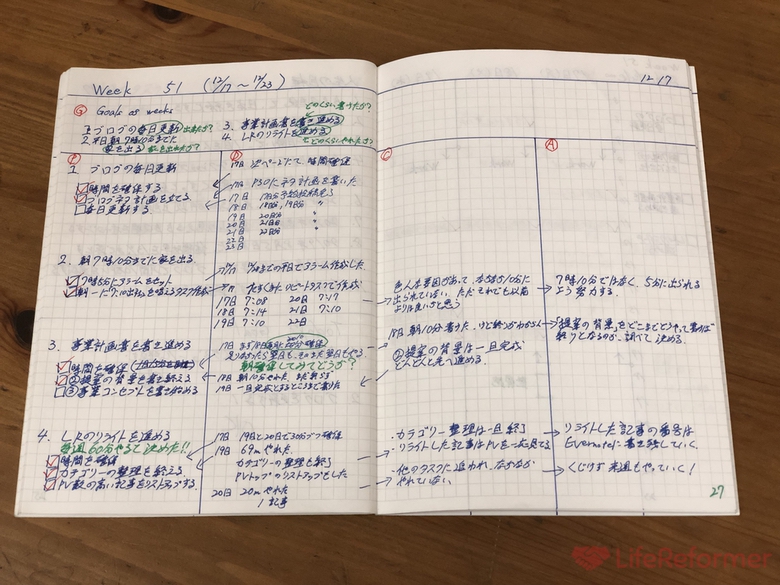 Week 51 (12/17 ～ 12/23)
12 17
G Goals as weeks
1. ブログの毎日更新 出来たか?
2. 平日朝7時10分までに
家を出る 家を出れたか?
どのくらい書けたか?
3. 事業計画書を書き進める
4. LRのリライトを進める
どのくらいやれたか?
P
1 ブログの毎日更新
時間を確保する
ブログネタ計画を立てる
毎日更新する
2. 朝7時10分までに家を出る.
7時5分にアラームをセット
3. 事業計画書を書き進める
時間を確保
②提案の背景を書き終える
③事業コンセプトを書き始める
4. LRのリライトを進める
毎週60分やると決めた!!
時間を確保
カテゴリーの整理を終える
PV数の高い記事をリストアップする
D
17日 次ページにて、時間確保
17日 P30にネタ計画を書いた
17日 17日分予約投稿完了
18日 18日分, 19日分 〃
19日 20日分 〃
20日 21日分 〃
21日 22日分 〃
22日
23日
17日 7:08 20日 7:17
18日 7:14 21日 7:10
19日 7:10 22日
朝確保してみてどうか?
18日 朝10分やれた
19日 一旦完成とするところまで書けた
17日 19日と20日で30分づつ確保
19日 69mやれた
カテゴリーの整理も終了
PVトップのリストアップもした
20日 20mやれた
1記事
C
色んな要因があって、なかなか10分に
出られていない. ただ それでも以前
よりは良いと思う
18日 朝10分書けた. けど終りがわからん
②提案の背景は一旦完成
どんどん先へ進める.
・カテゴリー整理は一旦終了
・リライトした記事はPVを
・他のタスクに追われ、なかなか
やれていない.
A
7時10分ではなく、5分に出られる
よう努力する.
「提案の背景」をどこまでどうやって書けば
終りとなるのか、調べて決める.
リライトした記事の番号は
Evernoteに書き残していく.
くじけず来週もやっていく!
27
LifeReformer